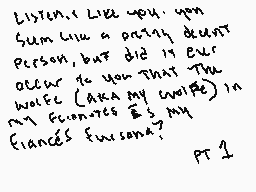 Listen, I like you. you
Sum like a pretty decent
Person, but did it ever
occur to you that the
wolfe (AKA my wolfe) in
my Flipnotes is my
fiancés fursona?
PT 1